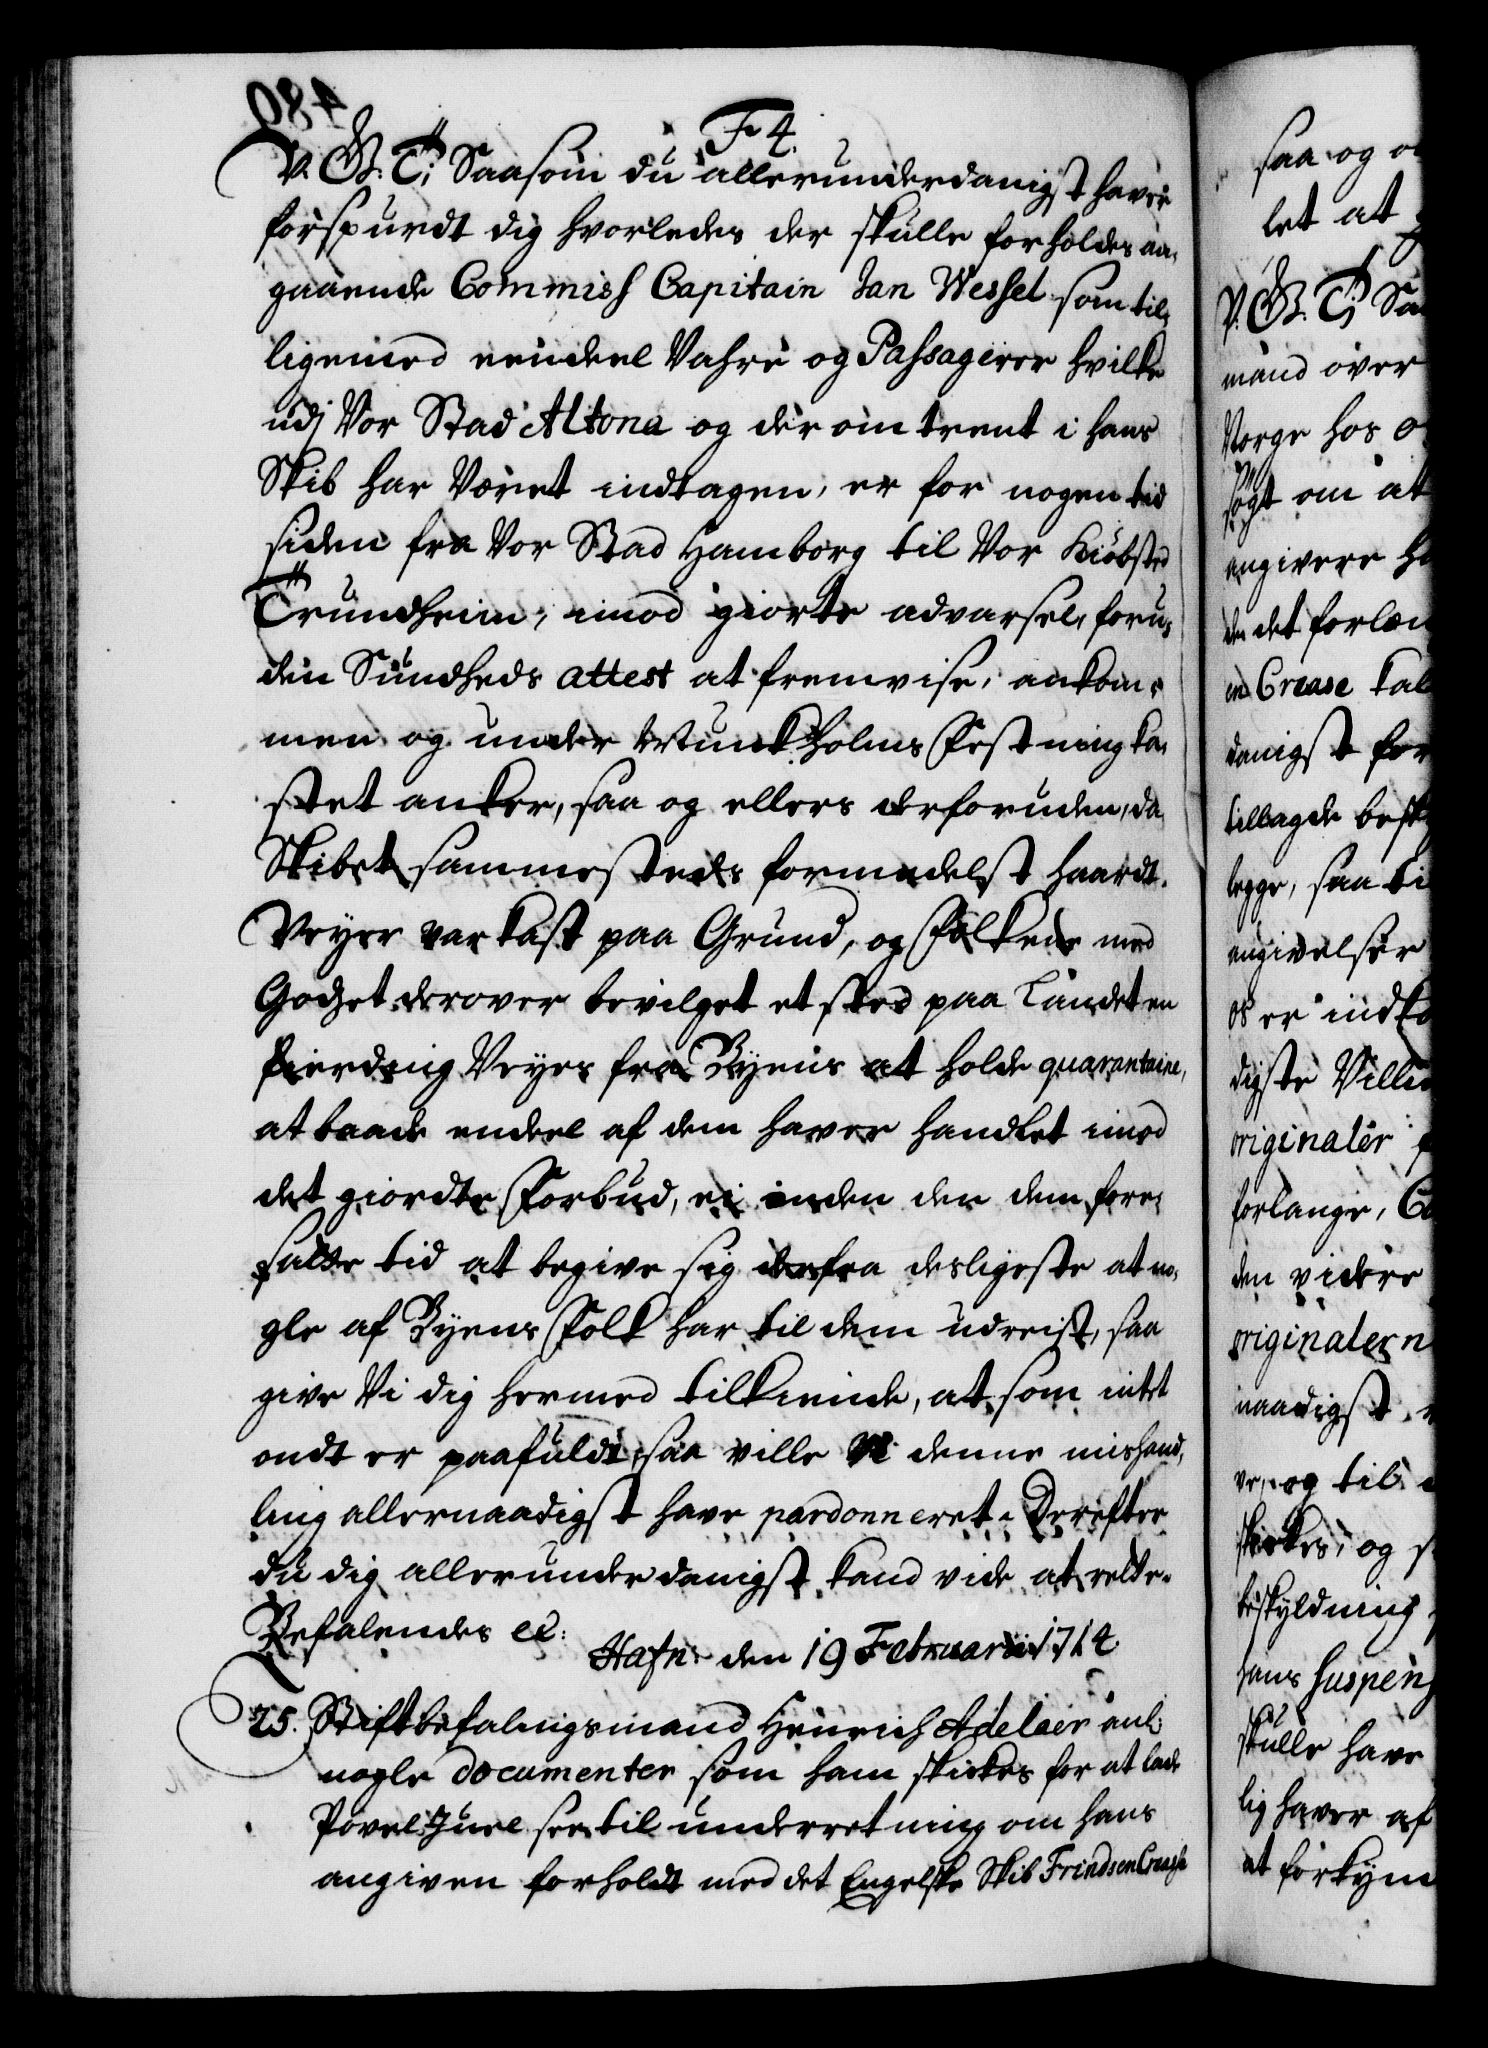 F 4.
V. G. T; Saasom du allerunderdanigst haver
forspurdt dig hvorledes der skulle forholdes an¬
gaaende Commiss Capitain Jan Wessel som til¬
ligemed eendeel Vahre og Passagerer hvilke
udj Vor Stad Altona og der omtrent i hans
Skib har Været indtagen, er for nogen tid
siden fra Vor Stad Hamborg til Vor Kiøbsted
Trundheim, imod giorte advarsel, foru¬
den Sundheds attest at fremvise, ankom¬
men og under Munkholms Festning ka¬
stet anker, saa og ellers derforuden, da
Skibet sammesteds formedelst haardt
Veyer var kast paa Grund, og Folkene med
Godset derover bevilget et sted paa Landet en
fierding Veyes fra Byens at holde quarantaine,
at baade endeel af dem haver handlet imod
det giordte Forbud, ei inden den dem fore¬
satte tid at begive sig derfra desligeste at no¬
gle af Byens Folk har til dem udreist, saa
give Vi dig hermed tilkiende, at som intet
ondt er paafuldt, saa ville Vi denne mishand¬
ling allernaadigst have pardonneret. Derefter
du dig allerunderdanigst kand vide at rette.
Befalendes etc:
Hafn: den 19 Februarii 1714
25. Stiftbefalingsmand Henrich Adelaer anl:
nogle documenter som ham skickes for at lade
Povel Juel see til underretning om hans
angiven forholdt med det Engelske Skib Frindsen Creagh
saa og
let at
V. G. T; Saa
mand over
Norge hos
søgt om at
angivere
det forlæn
Crease kal
danigst for
tillagde besk
legge, saa ti
angivelser
os er indko
digste Villie
originaler
forlange,
den videre
originalern
naadigst
ve, og til
skickes, og
beskyldning
hans suspens
skulle have
lig haver af
at forkyn